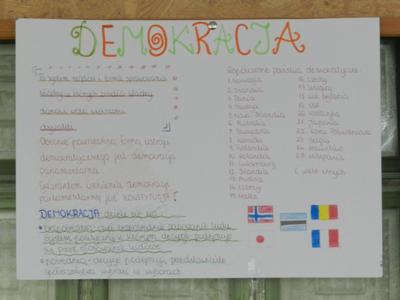 DEMOKRACJA
to system rządów i forma sprawowania
władzy w których źródło władzy
stanowi wola większości
obywateli
Obecnie powszechną formą ustroju
demokratycznego jest demokracja
parlamentarna
Gwarantem istnienia demokracji
parlamentarnej jest konstytucja!
DEMOKRACJA dzieli się na:
bezpośrednią
system polityczny w którym decyzje podejmuje
się przez głosowanie ludowe
pośrednią - decyzje podejmują przedstawiciele
społeczeństwa wybrani w wyborach
Współczesne państwa demokratyczne:
1. Norwegia
2. Islandia
3. Dania
4. Szwecja
5. Nowa Zelandia
6. Australia
7. Szwajcaria
8. Kanada
9. Finlandia
10. Holandia
11. Luksemburg
12. Irlandia
13. Austria
14. Niemcy
15. Malta
16. Czechy
17. Urugwaj
18. Wlk. Brytania
19. USA
20. Kostaryka
21. Japonia
22. Korea Południowa
23. Belgia
24. Mauritius
25. Hiszpania
i wiele innych